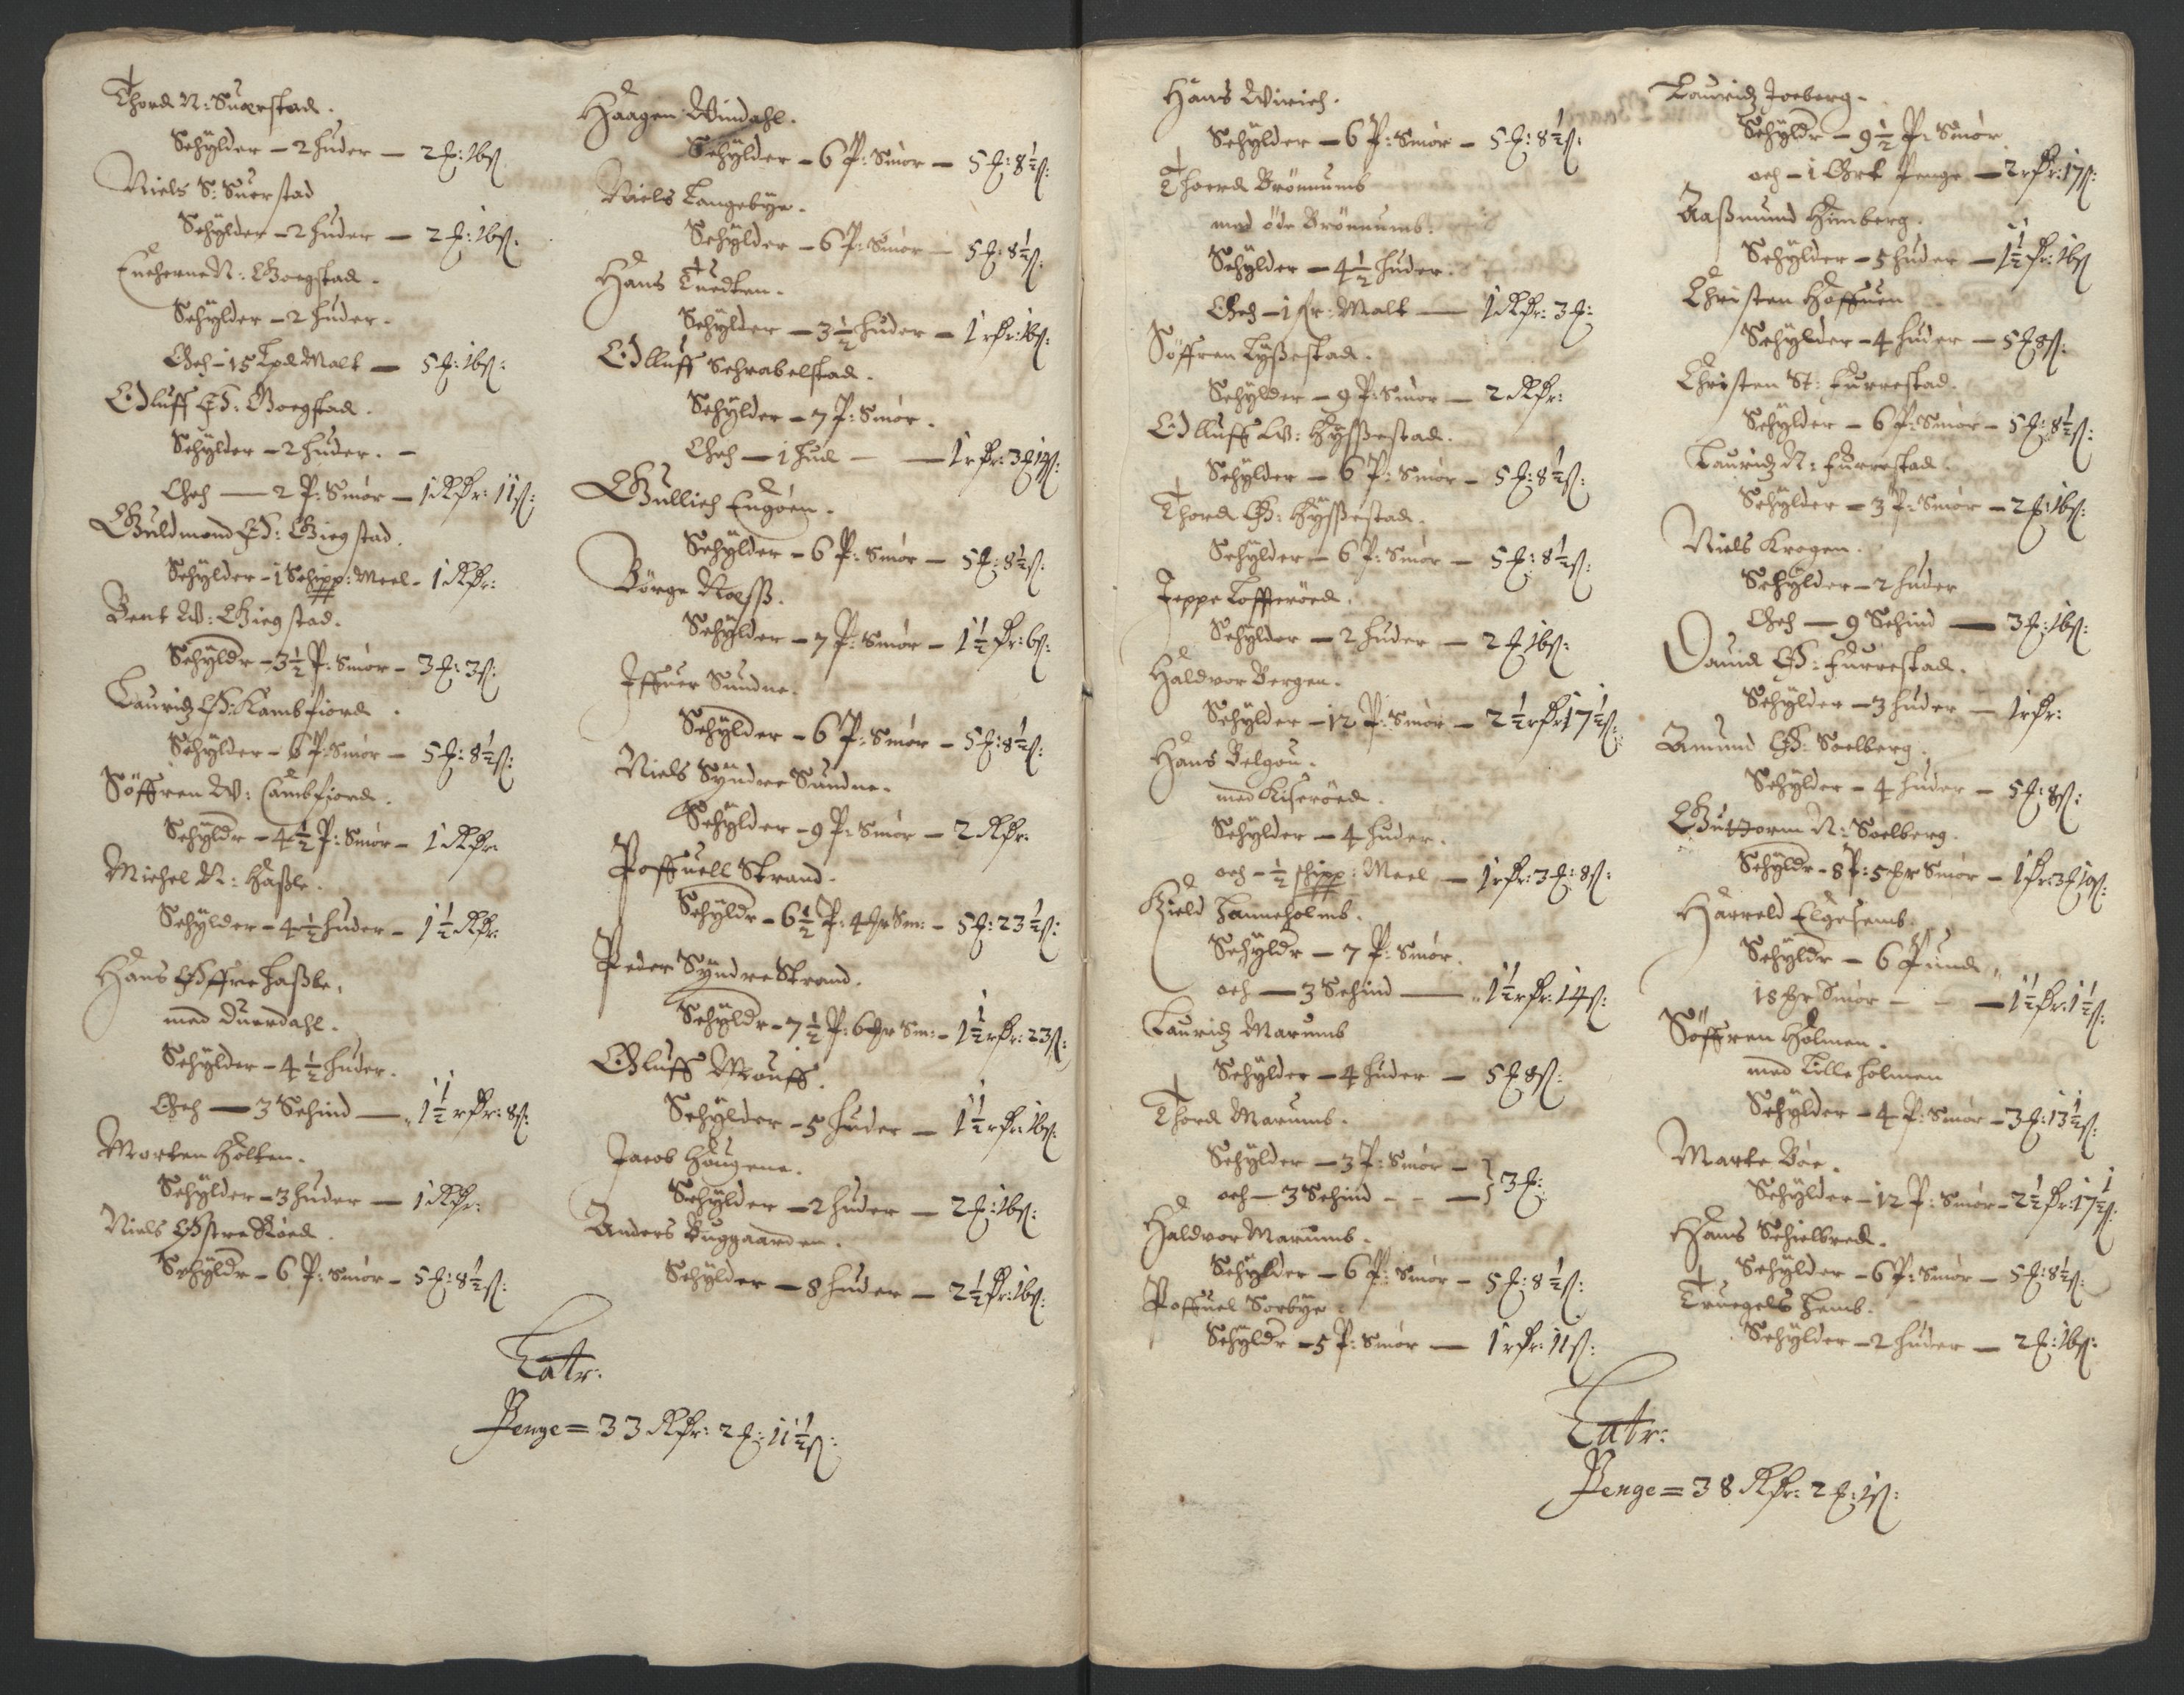 Thord N: Suerstad.
Schylder – 2 huder – 2 ℔: 16 ß.
Niels S: Suerstad
Schylder – 2 huder – 2 ℔: 16 ß:
N: Goegstad.
Schylder – 2 huder.
Och – 15 Lpd Malt – 5 ℔: 16 ß:
Olluff Ø: Goegstad.
Schylder – 2 huder. –
Och – 2 P: Smør – 1 Rdr: 11 ß:
Guldmond Ø: Giegstad.
Schylder – 1 Schipp: Meel – 1 Rdr:
Bent W: Giegstad.
Schyldr – 3½ P: Smør – 3 ℔: 3 ß:
Lauridz Ø: Kambfiord.
Schylder – 6 P: Smør – 5 ℔: 8½ ß:
Søffren W: Cambfiord.
Schyldr – 4½ P: Smør – 1 Rdr:
Michel N: Haßle.
Schylder – 4½ huder – 1½ Rdr:
Hans Øffre Haßle,
med Duerdahl.
Schylder – 4½ huder.
Och – 3 Schind – 1½ rdr: 8 ß:
Morten Holten.
Schylder – 3 huder – 1 Rdr:
Niels Østre Røed.
Schyldr – 6 P: Smør – 5 ℔: 8½ ß:
Haagen Windahl.
Schylder – 6 P: Smør – 5 ℔: 8½ ß:
Niels Langebye.
Schylder – 6 P: Smør – 5 ℔: 8½ ß:
Hans Tuedten.
Schylder – 3½ huder – 1 rdr: 16 ß:
Olluff Schrabelstad.
Schylder – 7 P: Smør.
Och – 1 Hud – – 1 rdr: 3 ℔ 14 ß:
Gullich Engøen.
Schylder – 6 P: Smør – 5 ℔: 8½ ß:
Børge Noeß.
Schylder – 7 P: Smør – 1½ dr: 6 ß:
Iffuer Sundne.
Schylder – 6 P: Smør – 5 ℔: 8½ ß:
Niels Syndre Sundne.
Schylder – 9 P: Smør – 2 Rdr:
Poffuell Strand.
Schyldr – 6½ P: 4 Sm: – 5 ℔: 23½ ß:
Peder Syndre Strand.
Schyldr – 7½ P: 6 Sm: – 1½ rdr: 23 ß:
Oluff Mouff.
Schylder – 5 huder – 1½ rdr: 16 ß:
Jacob Haugene.
Schylder – 2 huder – 2 ℔: 16 ß:
Anders Buggaarden.
Schylder – 8 huder – 2½ dr: 16 ß:
Latr:
Penge = 33 Rdr: 2 ℔: 11½ ß:
Hans Wirich.
Schylder – 6 P: Smør – 5 ℔: 8½ ß:
Thord Brønnums
med øde Brønnums.
Schylder – 4½ huder.
Och – 1 Malt – 1 Rdr: 3 ℔:
Søffren Lyßestad.
Schylder – 9 P: Smør – 2 Rdr:
Olluff W: Hyßestad.
Schylder – 6 P: Smør – 5 ℔: 8½ ß:
Thord Ø: Hyßestad.
Schylder – 6 P: Smør – 5 ℔: 8½ ß:
Jeppe Lofferøed.
Schylder – 2 huder – 2 ℔ 16 ß:
Haldvor Bergen.
Schylder – 12 P: Smør – 2½ rdr: 17½ ß:
Hans Belgou.
med Kiserøed.
Schylder – 4 huder.
och – ½ schipp: Meel – 1 rdr: 3 ℔: 8 ß:
Kield Hanneholmb.
Schyldr – 7 P: Smør.
och – 3 Schind – 1½ rdr: 14 ß:
Lauridz Marumb
Schylder – 4 huder – 5 ℔ 8 ß:
Thord Marumb.
Schylder – 3 P: Smør –
och – 3 Schind – – } 3 ℔:
Haldvor Marumb.
Schylder – 6 P: Smør – 5 ℔: 8½ ß:
Poffuel Sorbye
Schyldr – 5 P: Smør – 1 rdr: 11 ß:
Lauridz Joeberg.
Schyldr – 9½ P: Smør
och – 1 Ort Penge – 2 rdr: 17 ß:
Aaßmund Himberg.
Schylder – 5 huder – 1½ dr: 16 ß
Christen Hoffuen
Schylder – 4 huder – 5 ℔ 8 ß:
Christen St: Furrestad.
Schylder – 6 P: Smør – 5 ℔: 8½ ß:
Lauridz N: Furrestad.
Schylder – 3 P: Smør – 2 ℔: 16 ß:
Niels Krogen.
Schylder – 2 huder
Och – 9 Schind – 3 ℔: 16 ß:
Dauid Ø: Furrestad.
Schylder – 3 huder – 1 rdr:
Amund Ø: Soelberg.
Schylder – 4 huder – 5 ℔: 8 ß:
Guttorm N: Soelberg.
Schyldr – 8 P: 5 Smør – 1 dr: 3 ℔ 10 ß:
Harreld Elgesemb.
Schyldr – 6 Pund
18 Smør – – 1½ dr: 1½ ß:
Søffren Holmen.
med Lille Holmen
Schylder – 4 P: Smør – 3 ℔: 13½ ß:
Marte Bøe.
Schylder – 12 P: Smør – 2½ dr: 17½ ß:
Hans Schielbred.
Schylder – 6 P: Smør – 5 ℔: 8½ ß:
Truegels Hemb.
Schylder – 2 huder – 2 ℔: 16 ß:
Latr:
Penge = 38 Rdr: 2 ℔: 1 ß: